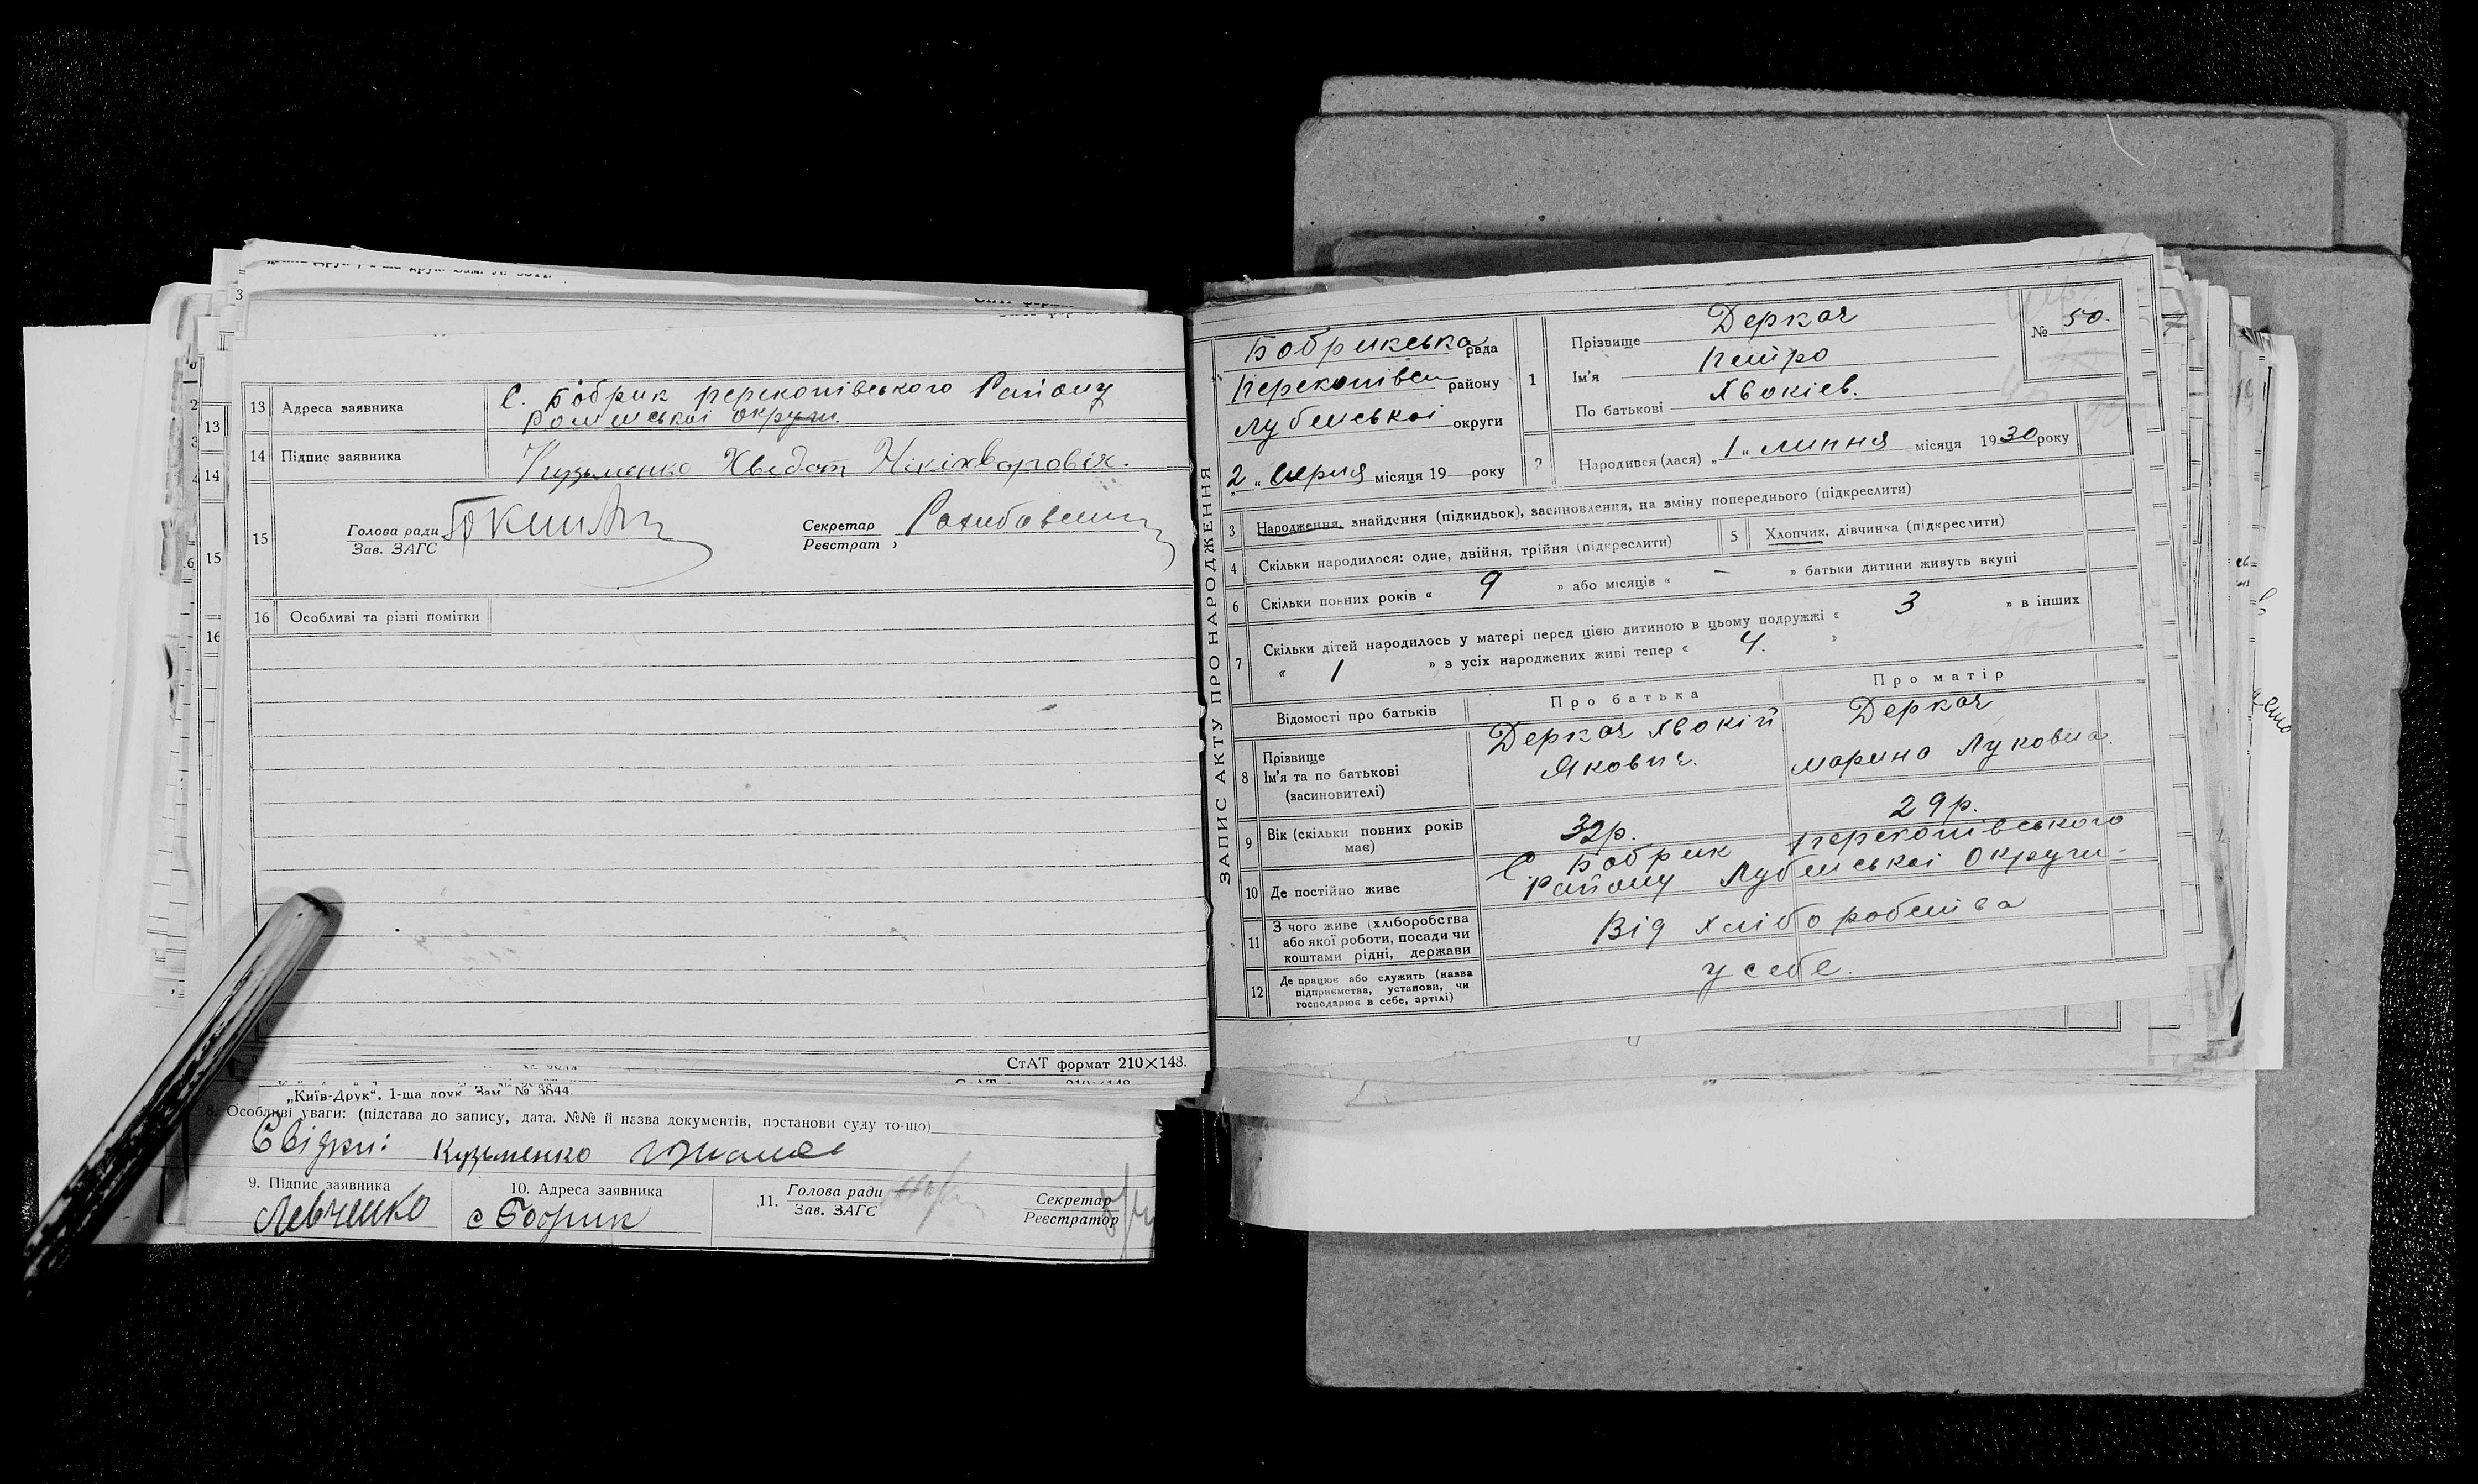 13 Адреса заявника С. Бобрик перекопівського Району
Роменської округи.
14 Підпис заявника Кузьменко Хведот Нікіхворовіч.
15 Голова ради
Зав. ЗАГС
Секретар
Реєстрат
16 Особливі та різні помітки
СтАТ формат 210×148.
„Київ-Друк“, 1-ша друк. Зам. № 3844
8. Особливі уваги: (підстава до запису, дата. №№ й назва документів, постанови суду то-що)
Свідки: Кузьменко
9. Підпис заявника 10. Адреса заявника 11. Голова ради Секретар
Зав. ЗАГС Реєстратор
Левченко с Бобрик
ЗАПИС АКТУ ПРО НАРОДЖЕННЯ
Бобрикська рада
Перекопівськ району
Лубенської округи
„2“ серпня місяця 19 року
1 Прізвище Деркач
Ім'я Петро
По батькові Хвокіев.
№ 50.
2 Народився (лася) „1“ липня місяця 1930 року
3 Народження, знайдення (підкидьок), засиновлення, на зміну попереднього (підкреслити)
4 Скільки народилося: одне, двійня, трійня (підкреслити) 5 Хлопчик, дівчинка (підкреслити)
6 Скільки повних років « 9 » або місяців « – » батьки дитини живуть вкупі
7 Скільки дітей народилось у матері перед цією дитиною в цьому подружжі « 3 » в інших
« 1 » з усіх народжених живі тепер « 4. »
Відомості про батьків Про батька Про матір
8 Прізвище
Ім'я та по батькові
(засиновителі)
Деркач Хвокій
Якович.
Деркач
марина Луковна.
9 Вік (скільки повних років
має)
32р. 29р.
10 Де постійно живе С. Бобрик перекопівського
Району Лубенської Округи.
11 З чого живе (хліборобства
або якої роботи, посади чи
коштами рідні, держави
Від хліборобства
12 Де працює або служить (назва
підприємства, установи, чи
господарює в себе, артілі)
у себе.